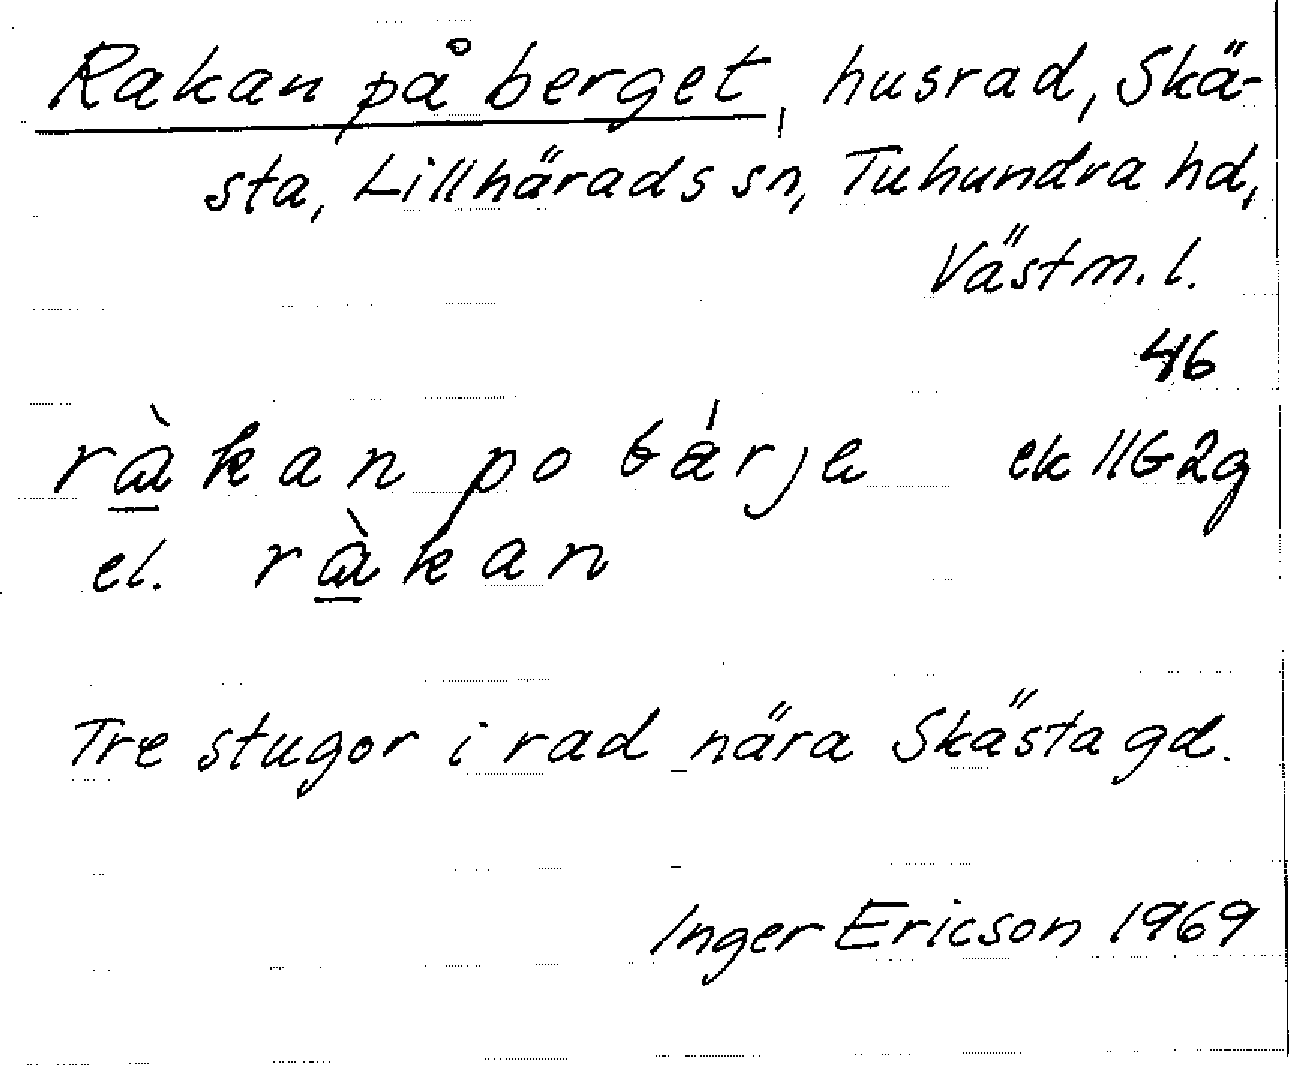 Rakan på berget, husrad, Skä-
sta, Lillhärads sn, Tuhundra hd,
Västm. l.
46
ràkan po bárje ek 11G2g
el. ràkan
Tre stugor i rad nära Skästa gd.
Inger Ericson 1969